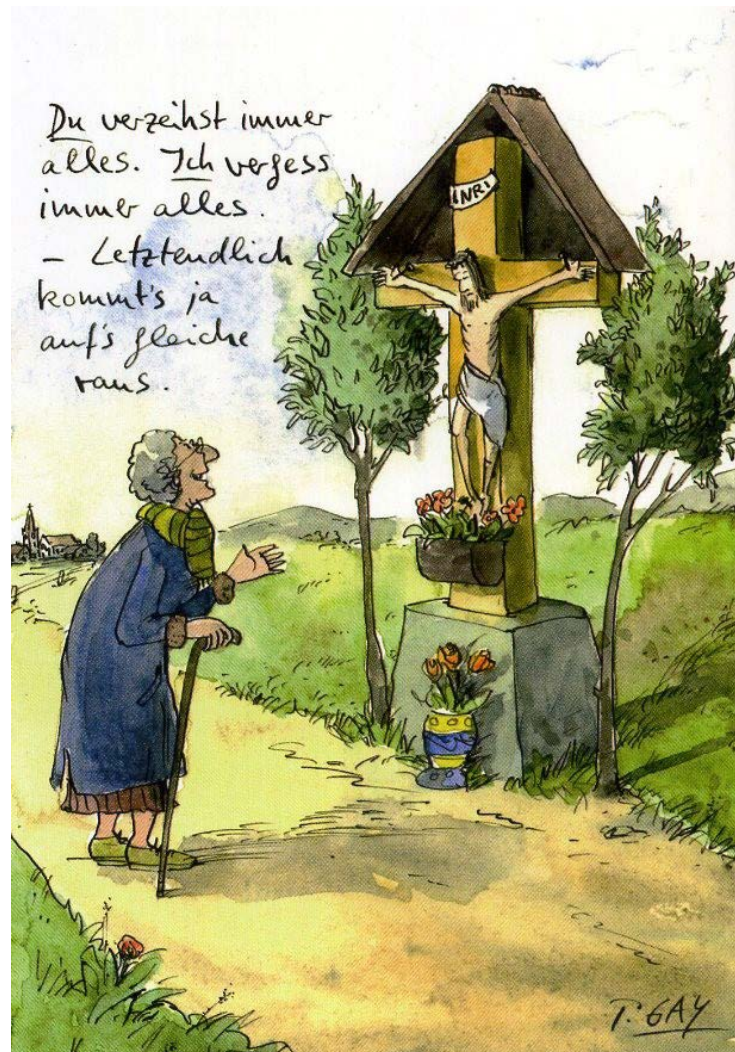 Du verzeihst immer
alles. Ich vergess
immer alles.
– Letztendlich
kommt's ja
auf's gleiche
raus.
INRI
T. GAY